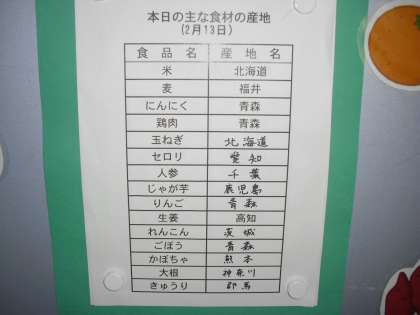 本日の主な食材の産地
(2月13日)
食品名 産地名
米 北海道
麦 福井
にんにく 青森
鶏肉 青森
玉ねぎ 北海道
セロリ 愛知
人参 千葉
じゃが芋 鹿児島
りんご 青森
生姜 高知
れんこん 茨城
ごぼう 青森
かぼちゃ 熊本
大根 神奈川
きゅうり 群馬